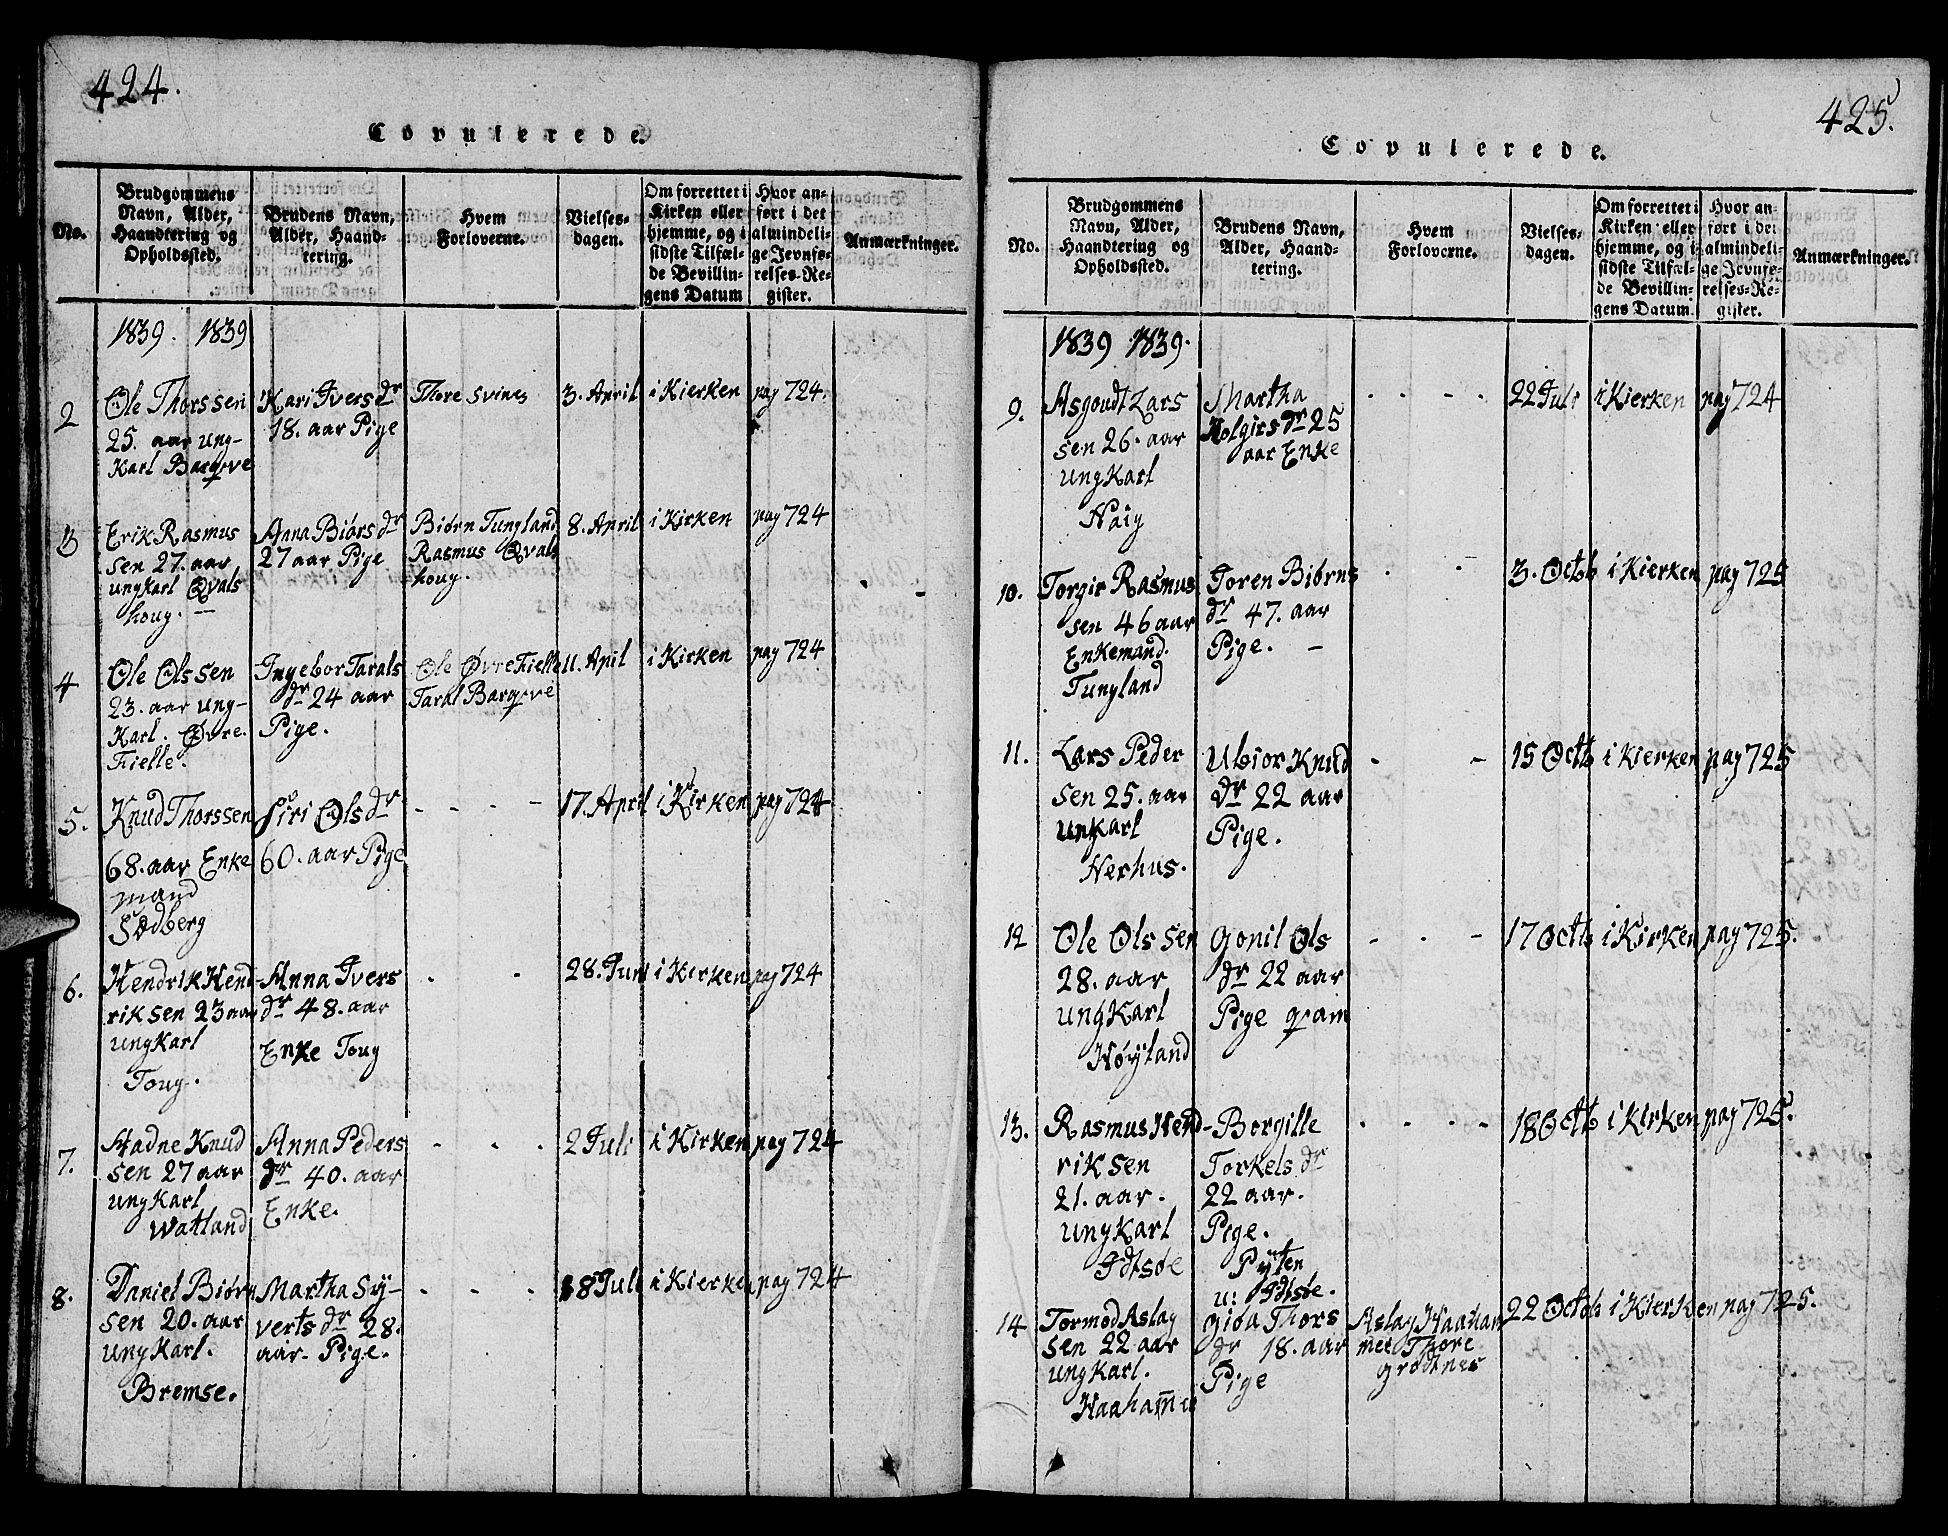 424.
Copulerede.
No.
Brudgommens
Navn, Alder,
Haandtering og
Opholdssted.
Brudens Navn,
Alder, Haand-
tering.
Hvem
Forloverne.
Vielses-
dagen.
Om forrettet i
Kirken eller
hjemme, og i
sidste Tilfæl-
de Bevillin-
gens Datum
Hvor an-
ført i det
almindeli-
ge Jevnfø-
relses-Re-
gister.
Anmærkninger.
1839. 1839
2
Ole Thorssen
25. aar ung-
Karl Barqve
Kari Ivers dr
18. aar Pige
Thore Svines
3. April
i Kierken
pag 724.
3
Erik Rasmus
sen 27. aar
ungkarl Qvals
houg. —
Anna Biörs dr
27 aar Pige
Biørn Tungland
Rasmus Qvals
houg.
8. April
i Kirken
pag 724
4
Ole Olssen
23. aar ung-
Karl. Øvre.
Fielle.
Ingebor Tarals
dr 24 aar
Pige.
Ole Øvre Fielle
Taral Barqve
11. April
i Kirken
pag 724
5.
Knud Thorssen
68. aar Enke
mand
Sødberg
Siri Ols dr
60. aar Pige
- - - -
17. April
i Kirken
pag 724
6.
Hendrik Hend-
riksen 23 aar
ungKarl
Toug.
Anna Ivers
dr 48. aar
Enke Toug
28. Juni
i Kierken
pag 724
7.
Aadne Knud
sen 27 aar
ungKarl
Watland
Anna Peders
dr 40. aar
Enke.
- - -
2 Juli
i Kirken
pag 724
8.
Daniel Biørn
sen 20. aar
ungKarl.
Bremse.
Martha Sy-
verts dr 28.
aar. Pige.
- - - -
18 Juli
i Kierken
pag 724
425.
Copulerede.
No.
Brudgommens
Navn, Alder,
Haandtering og
Opholdssted.
Brudens Navn,
Alder, Haand-
tering.
Hvem
Forloverne.
Vielses-
dagen.
Om forrettet i
Kirken eller
hjemme, og i
sidste Tilfæl-
de Bevillin-
gens Datum.
Hvor an-
ført i det
almindeli-
ge Jevnfø-
relses-Re-
gister.
Anmærkninger.
1839 1839.
9.
Asgoudt Lars
sen 26. aar
ungKarl
Haig
Martha
Holgirs dr 25
aar Enke
- - - -
22 Juli
i Kierken
pag 724
10.
Torgir Rasmus
sen 46 aar
Enkemand.
Tungland
Joren Biørns
dr 47. aar
Pige. —
3. Octob
i Kierken
pag 725
11.
Lars Peder
sen 25. aar
unKarl
Nerhus.
Ubior Knud
dr 22 aar
Pige.
- -
15 Octb
i Kierken
pag 725
12
Ole Olssen
28. aar
ungKarl
Høyland
Gonil Ols
dr 22 aar
Pige qvam
- - -
17 Octb
i Kirken
pag 725.
13.
Rasmus Hend-
riksen
21. aar.
ungKarl
Idtsøe
Borgille
Torkels dr
22 aar.
Pige.
Pyten
u: Idtsøe.
- - - -
18 Octb
i Kirken
pag 725.
14
Tormod Aslag
sen 22 aar
ungKarl.
Haahamer
Gioa Thors
dr 18. aar
Pige
Aslag Haaham
mer Thore
Grødtnes
22 Octob
i Kierken
pag 725.